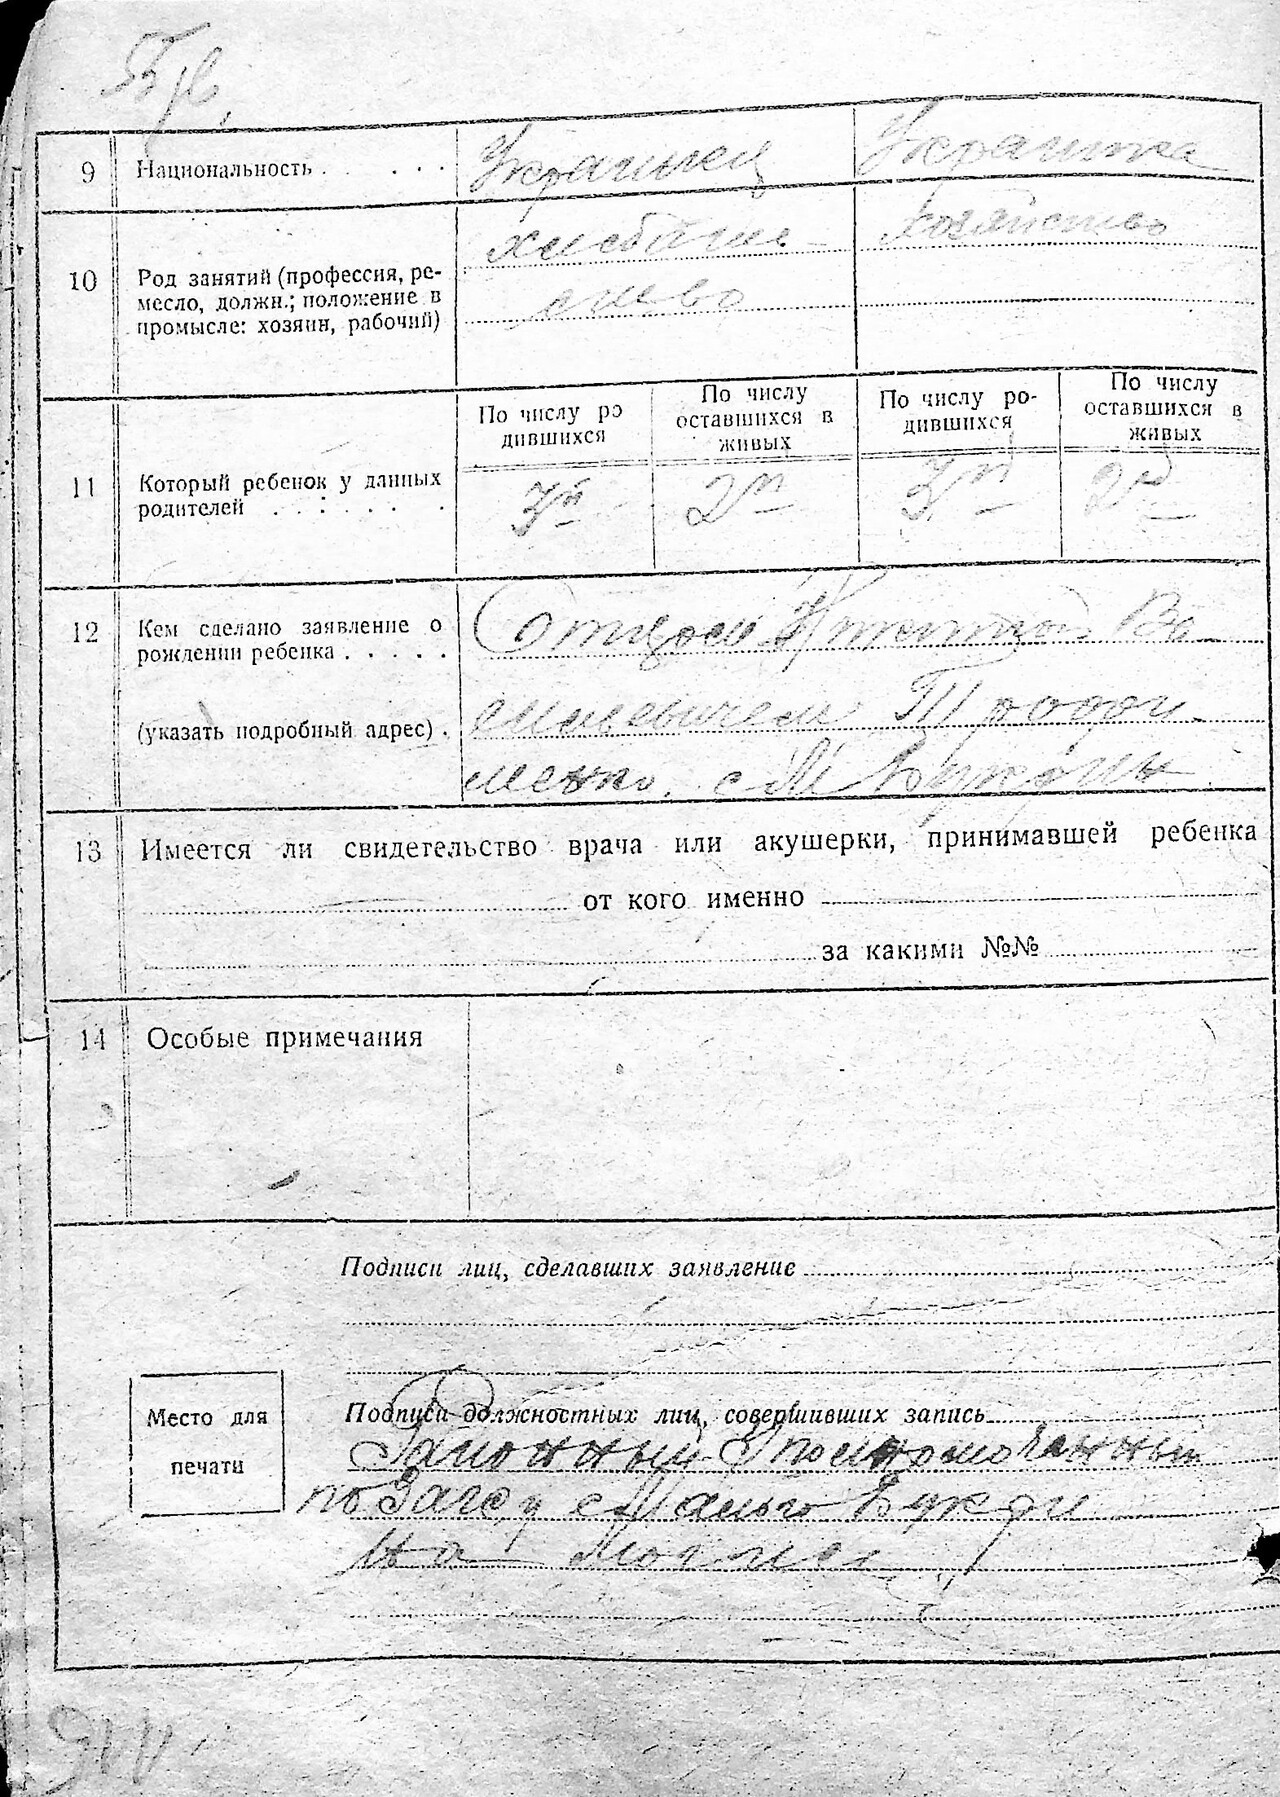 9 Национальность . . . . . Украинец Украинка
10 Род занятий (профессия, ре-
месло, должн.; положение в
промысле: хозяин, рабочий)
хлебопаше
ство
Хозяйство
11 Который ребенок у данных
родителей . . . . . . .
По числу ро
дившихся
По числу
оставшихся в
живых
По числу ро-
дившихся
По числу
оставшихся в
живых
3й 2й 3й 2й
12 Кем сделано заявление о
рождении ребенка . . . . .
(указать подробный адрес) .
Отцом Ва
сильевичем Трофи
менко. с М Букрин
13 Имеется ли свидетельство врача или акушерки, принимавшей ребенка
от кого именно
за какими №№
14 Особые примечания
Подписи лиц, сделавших заявление
Место для
печати
Подписи должностных лиц, совершивших запись
Районный Уполномоченный
по Загсу с Малого Букри
на